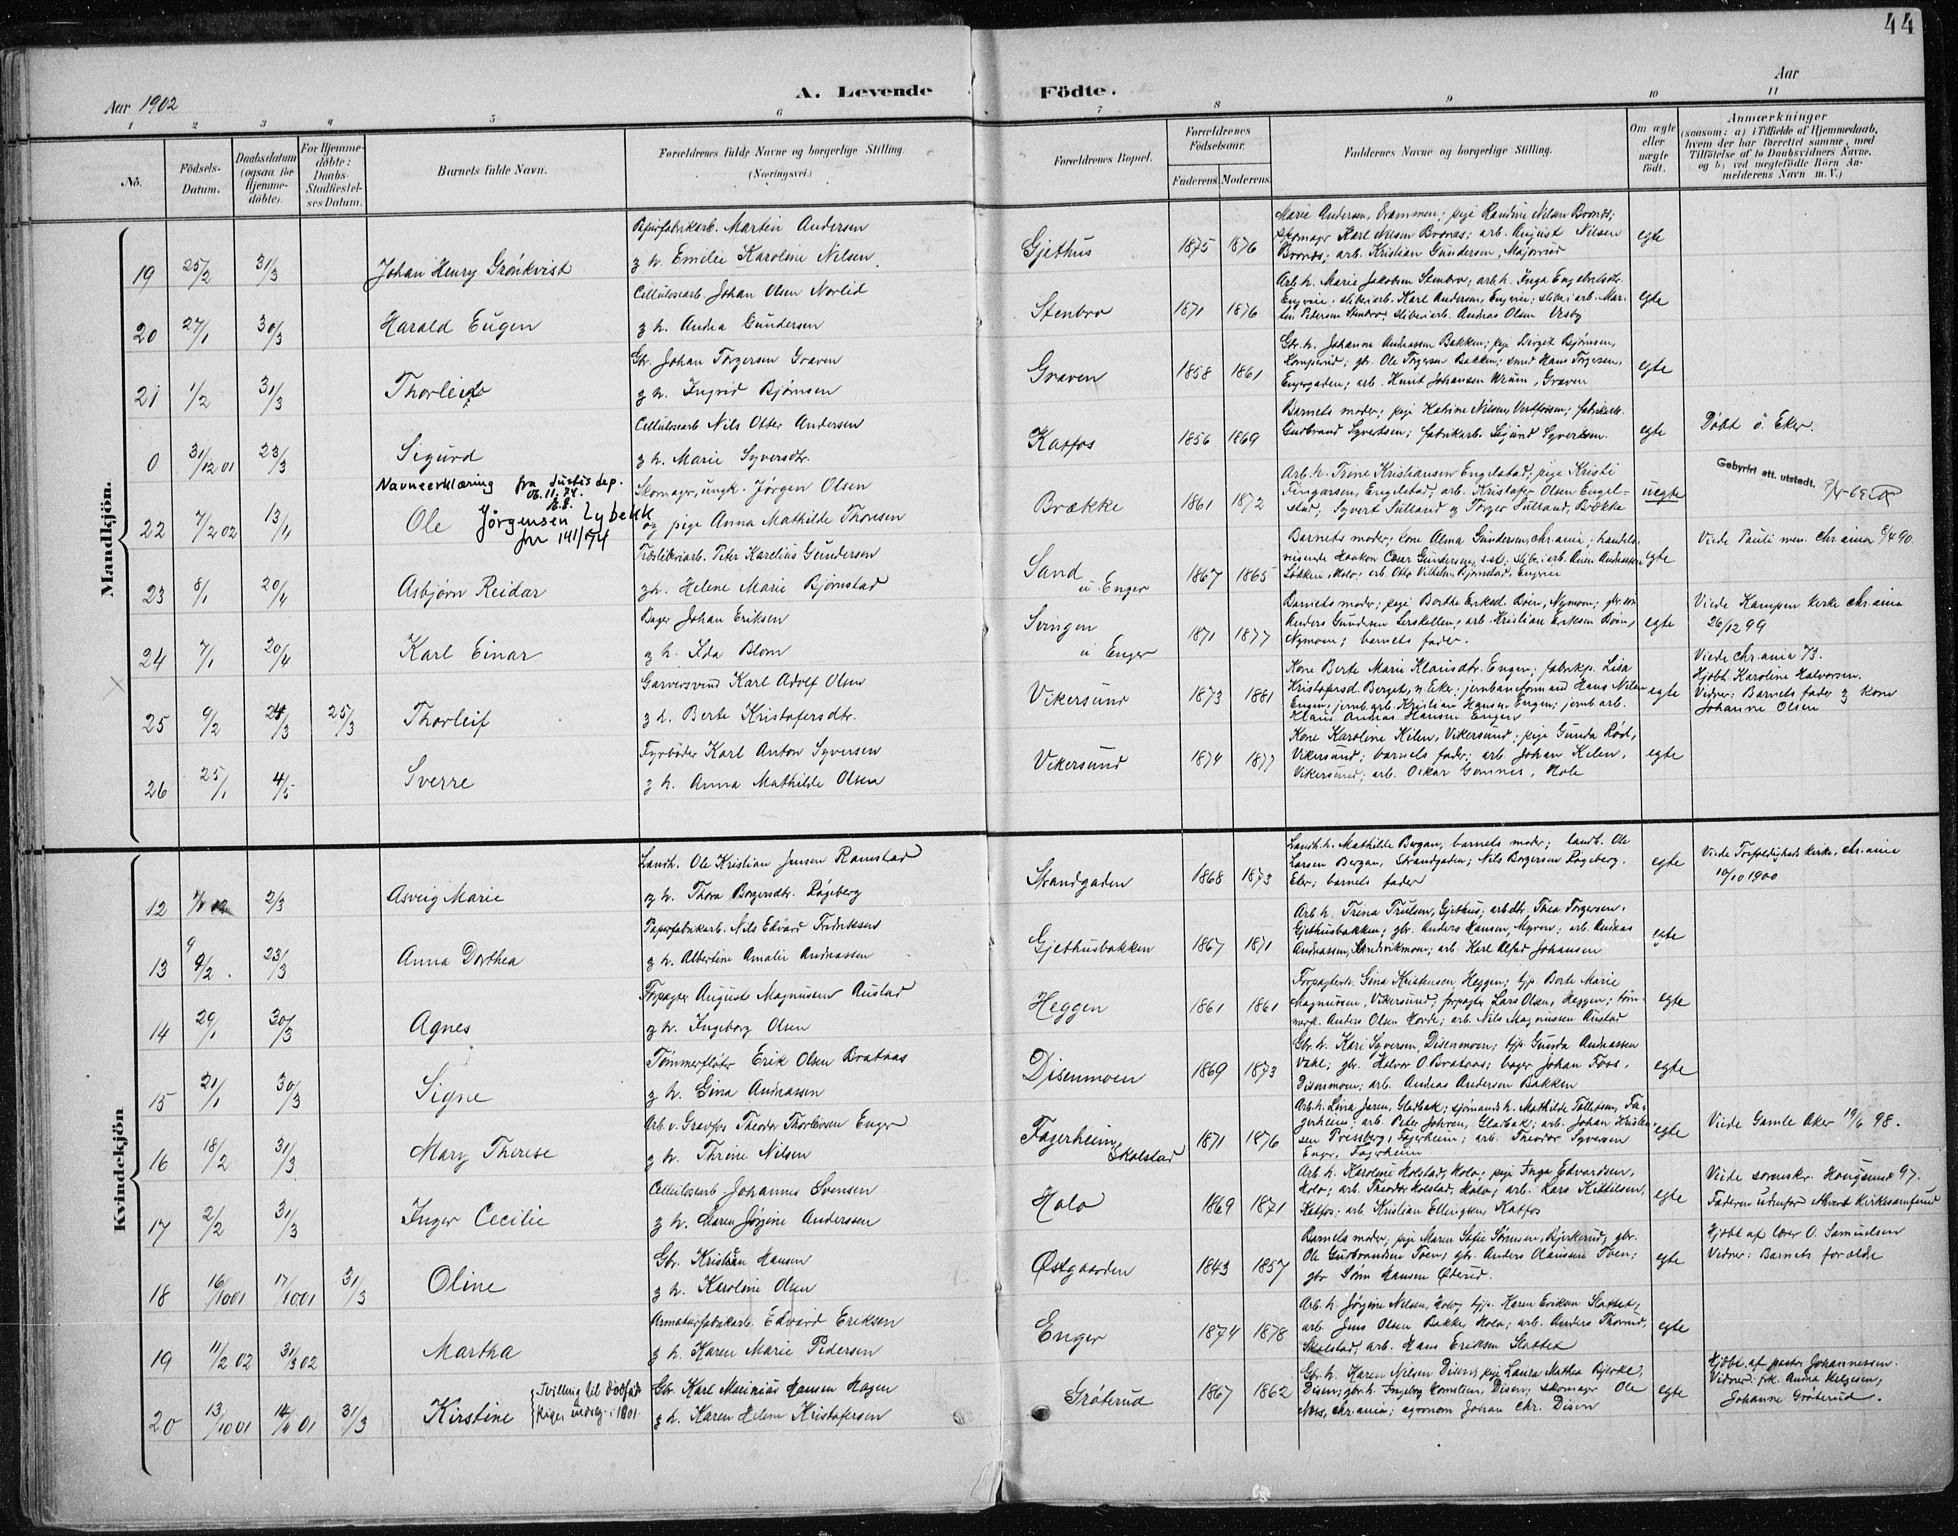 44
Aar 1902
A. Levende
Födte.
Aar
1 2 3 4 5 6 7 8 9 10 11
No.
Födsels-Datum.
Daabsdatum (ogsaa for Hjemme-döbte).
For Hjemme-döbte: Daabs-Stadfæstel-ses Datum.
Barnets fulde Navn.
Forældrenes fulde Navne og borgerlige Stilling. (Næringsvei.)
Forældrenes Bopæl.
Forældrenes Födselsaar.
Faderens. Moderens.
Faddernes Navne og borgerlige Stilling.
Om ægte eller uægte födt.
Anmærkninger
(saasom: a) i Tilfælde af Hjemmedaab, hvem der har forrettet samme, med Tilföielse af to Daabsvidners Navne, og b) ved uægtefödte Börn An-melderens Navn m. V.)
Mandkjön.
19 25/2 31/3 Johan Henry Grönkvist
Papirfabrikarb. Martin Andersen
g h. Emilie Karoline Nilsen
Gjethus 1875 1876
Marie Andersen, Drammen; pige Randine Nilsen Braanås;
skomager Karl Nilsen Braanås; arb. August Nilsen
Braanås; arb. Kristian Gundersen, Majorrud
egte
20 27/1 30/3 Harald Eugen
Cellulosearb. Johan Olsen Norlid
g h. Andrea Gundersen
Stenbro 1871 1876
Arb. h. Marie Jakobsen Stenbro; arb. h. Inga Engebretsdtr.
Engvie; sliberiarb. Karl Andersen, Engvie; sliberiarb. Mar-
tin Petersen Stenbro; sliberiarb. Andreas Olsen
egte
21 1/2 31/3 Thorleif
Gbr. Johan Torgersen Graven
g h. Ingrid Bjørnsen
Graven 1858 1861
Gbr. h. Johanne Andreassen Bakken; pige Berget Bjørnsen,
gbr. Ole Torgersen Bakken; smed Hans Torgersen,
Engergaden; arb. Knut Johansen Wrum, Graven
egte
0 31/12 01 23/3 Sigurd
Cellulosearb Nils Otter Andersen
g h. Marie Syversdtr.
Katfos 1856 1869
Barnets moder; pige Katrine Nilsen, Vestfossen; fabrikarb.
Gudbrand Syvertsen; fabrikarb. Sigurd Syvertsen.
egte
Døbt ö. Eker.
Navneerklæring fra Justisdep.
06.11.74.
22 7/2 02 13/4 Ole Jörgensen Lybekk
jnr 141/74
Skomager, ungk. Jørgen Olsen
og pige Anna Mathilde Thoresen
Brække 1861 1872
Arb. h. Trine Kristiansen Engelstad; pige Kristi
Fingarsen, Engelstad; arb. Kristofer Olsen Engel-
stad; Syvert Sulland og Torger Sulland, Brække
uegte
Gebyrfri att. utstedt.
23 8/1 20/4 Asbjørn Reidar
Træsliberiarb. Peter Karelius Gundersen
g h. Helene Marie Bjørnstad
Sand
u Enger
1867 1865
Barnets moder; kone Alma Gundersen, Chr.ania; handels-
reisende Haakon Oscar Gundersen, sst; sliberiarb. Anen Andreassen
Løkken, Holo; arb. Otto Vilhelm Bjørnstad, Engvie
egte
Viede Pauli men. Chr.ania 6/4 90.
24 7/1 20/4 Karl Einar
Bager Johan Eriksen
g h. Ida Blom
Svingen
u Enger
1871 1877
Barnets moder; pige Berthe Eriksd. Bøen, Nymoen; gbr. søn
Anders Gundersen Lerskallen; arb. Kristian Eriksen Bøen,
Nymoen; barnets fader.
egte
Viede Kampen kirke Chr.ania
26/12 99
25 9/2 24/3 25/3 Thorleif
Garversvend Karl Adolf Olsen
g h. Berte Kristofersdtr.
Vikersund 1873 1881
Kone Berte Marie Klausdtr. Engen; fabrikp. Lisa
Kristofersd. Berget, n. Eker; jernbaneformand Hans Nilsen
Engen; jernb. arb. Kristian Hansen Engen; jernb. arb.
Klaus Andreas Hansen Engen
egte
Viede Chr.ania 73.
Hjdbt. Karoline Halvorsen.
Vidner: Barnets fader g kone
Johanne Olsen
26 25/1 4/5 Sverre
Fyrbøder Karl Anton Syversen
g h. Anna Mathilde Olsen
Vikersund 1874 1877
Kone Karoline Kilen, Vikersund; pige Gunda Rød,
Vikersund; barnets fader; arb Johan Kilen,
Vikersund; arb. Oskar Gomnes, Hole
egte
Kvindekjön
12 2/3 Asveig Marie
Landh. Ole Kristian Jensen Ramstad
g h. Thora Borgersdtr. Røgeberg
Strandgaden 1868 1873
Landh. h. Mathilde Bergan; barnets moder; landh. Ole
Larsen Bergan, Strandgaden; Nils Borgersen Røgeberg.
Eker; barnets fader
egte
Viede Trefoldigheds kirke, Chr.ania
10/10 1900
13 9/2 23/3 Anna Dorthea
Papirfabrikarb. Nils Edvard Fredriksen
g h. Albertine Amalie Andreassen
Gjethusbakken 1867 1871
Arb. h. Trina Trulsen, Gjethus; arbdtr. Thea Torgersen,
Gjethusbakken; gbr. Anders Hansen, Myren; arb. Andreas
Andreassen, Skredvikmoen; arb. Karl Alfred Johansen
egte
14 29/1 30/3 Agnes
Forpagter August Magnussen Austad
g h. Ingeborg Olsen
Heggen 1861 1861
Forpagterh. Gina Kristensen, Heggen; tjp. Berte Marie
Magnussen, Vikersund; forpagter Lars Olsen, Heggen; tøm-
merm. Anders Olsen Hovde; arb. Nils Magnussen Austad
egte
15 21/1 30/3 Signe
Tømmerfløter Erik Olsen Brataas
g h. Gina Andreassen
Disenmoen 1869 1873
Gbr. h. Kari Syversen, Disenmoen; tjp. Gunda Andreassen
Vahl; gbr. Halvor O. Brataas; bager Johan Foss,
Disenmoen; arb. Andreas Andersen Bakken
egte
16 18/2 31/3 Mary Therese
Arb. v. Gravfos Theodor Thorleivsen Enger
g h. Thrine Nilsen
Fagerheim
Skolstad
1871 1876
Arb. h. Lina Jaren, Gladbak; sjømands h. Mathilde Tollefsen, Fa-
gerheim; arb. Peter Johren, Gladbak; arb. Johan Kristen-
sen Pressberg, Fagerheim; arb. Theodor Syversen
Enger, Fagerheim
egte
Viede Gamle Aker 19/6 98.
17 2/2 31/3 Inger Cecilie
Cellulosearb Johannes Svensen
g h. Maren Jørgine Anderssen
Holo 1869 1871
Arb. h. Karoline Holstad, Holo; pige Inga Edvardsen,
Holo; arb. Theodor Holstad, Holo; arb. Lars Kittilsen,
Katfos; arb. Kristian Ellingsen Katfos
egte
Viede Hougsund 97.
Faderen udenfor ethvert kirkesamfund
18 16/10 01 17/10 01 31/3 Oline
Gbr. Kristian Hansen
g h. Karoline Olsen
Østgaarden 1843 1857
Barnets moder; pige Maren Sofie Sørensen, Bjerkerud; gbr.
Ole Gudbrandsen Toen; gbr. Anders Olaussen Toen;
gbr Sørn Hansen Øderud.
egte
Hjdbt af lærer O. Samuelsen
Vidner: Barnets forældre
19 11/2 02 31/3 02 Martha
Armaturfabrikarb. Edvard Eriksen
g h. Karen Marie Pedersen
Enger 1874 1878
Arb. h. Jørgine Nilsen, Holo; tjp. Karen Eriksen Slattet;
arb. Jens Olsen Bakke, Holo; arb. Anders Thorrud,
Skolstad, arb. Hans Eriksen Slattet
egte
20 13/10 01 14/10 01 31/3 Kirstine
{Tvilling til dødfød
pige, indreg. i 1901.
Gbr. Karl Marinius Hansen Hagen
g h. Karen Helene Kristofersen
Grøterud 1867 1862
Gbr. h. Karen Nilsen Disen; pige Laura Mathea Bjerke,
Disen; gbr. h. Ingeborg Kornelius, Disen; skomager Ole
Næss, Chr.ania; agronom Johan Chr. Disen
egte
Hjdbt. af pastor Johannessen.
Vidner: frk. Anna Helgesen,
Johanne Grøterud.